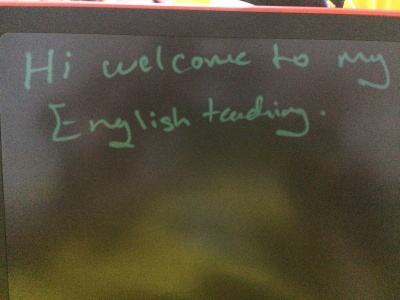 Hi welcome to my
English teaching.